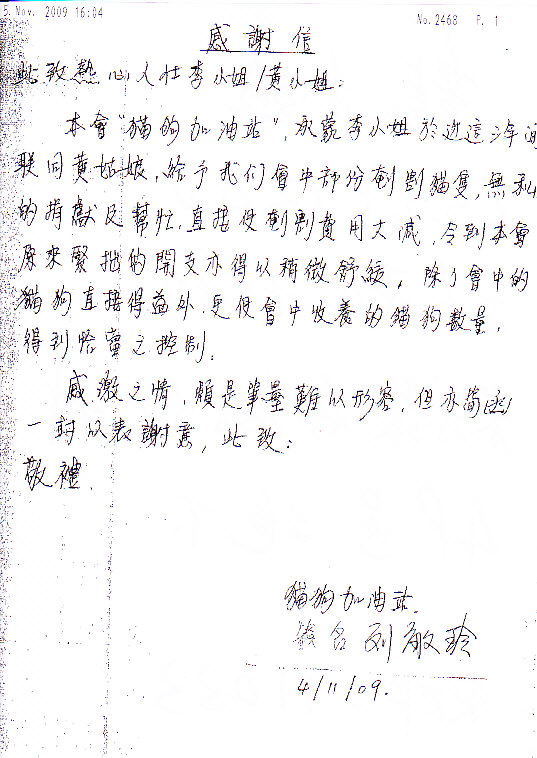 5. Nov. 2009 16:04 No. 2468 P. 1
感謝信
此致熱心人仕李小姐/黃小姐:
本會"貓狗加油站",承蒙李小姐於近這
联同黄姑娘,給予我们會中部份劏割貓隻,無私
的捐獻及幫忙,直接使劏割費用大減,令到本會
原來緊拙的開支亦得以稍微舒緩,除了會中的
貓狗直接得益外,更使會中收養的貓狗數量,
得到恰當之控制。
感激之情,頗是筆墨難以形容,但亦簡函
一封以表謝意,此致:
敬禮
貓狗加油站
簽名 列敏玲
4/11/09.